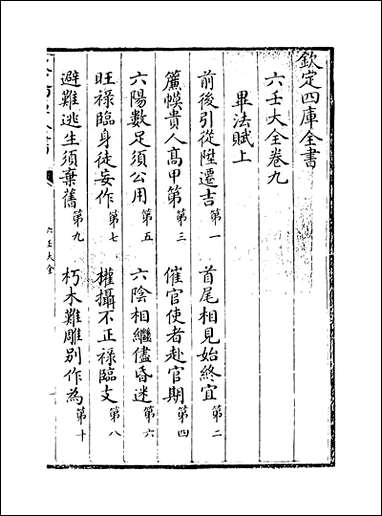 欽定四庫全書
六壬大全卷九
畢法賦上
前後引從陞遷吉 第一 首尾相見始終宜 第二
簾幙貴人髙甲第 第三 催官使者赴官期 第四
六陽數足須公用 第五 六陰相繼儘昏迷 第六
旺禄臨身徒妄作 第七 權攝不正禄臨支 第八
避難逃生須棄舊 第九 朽木難雕别作為 第十
六壬大全